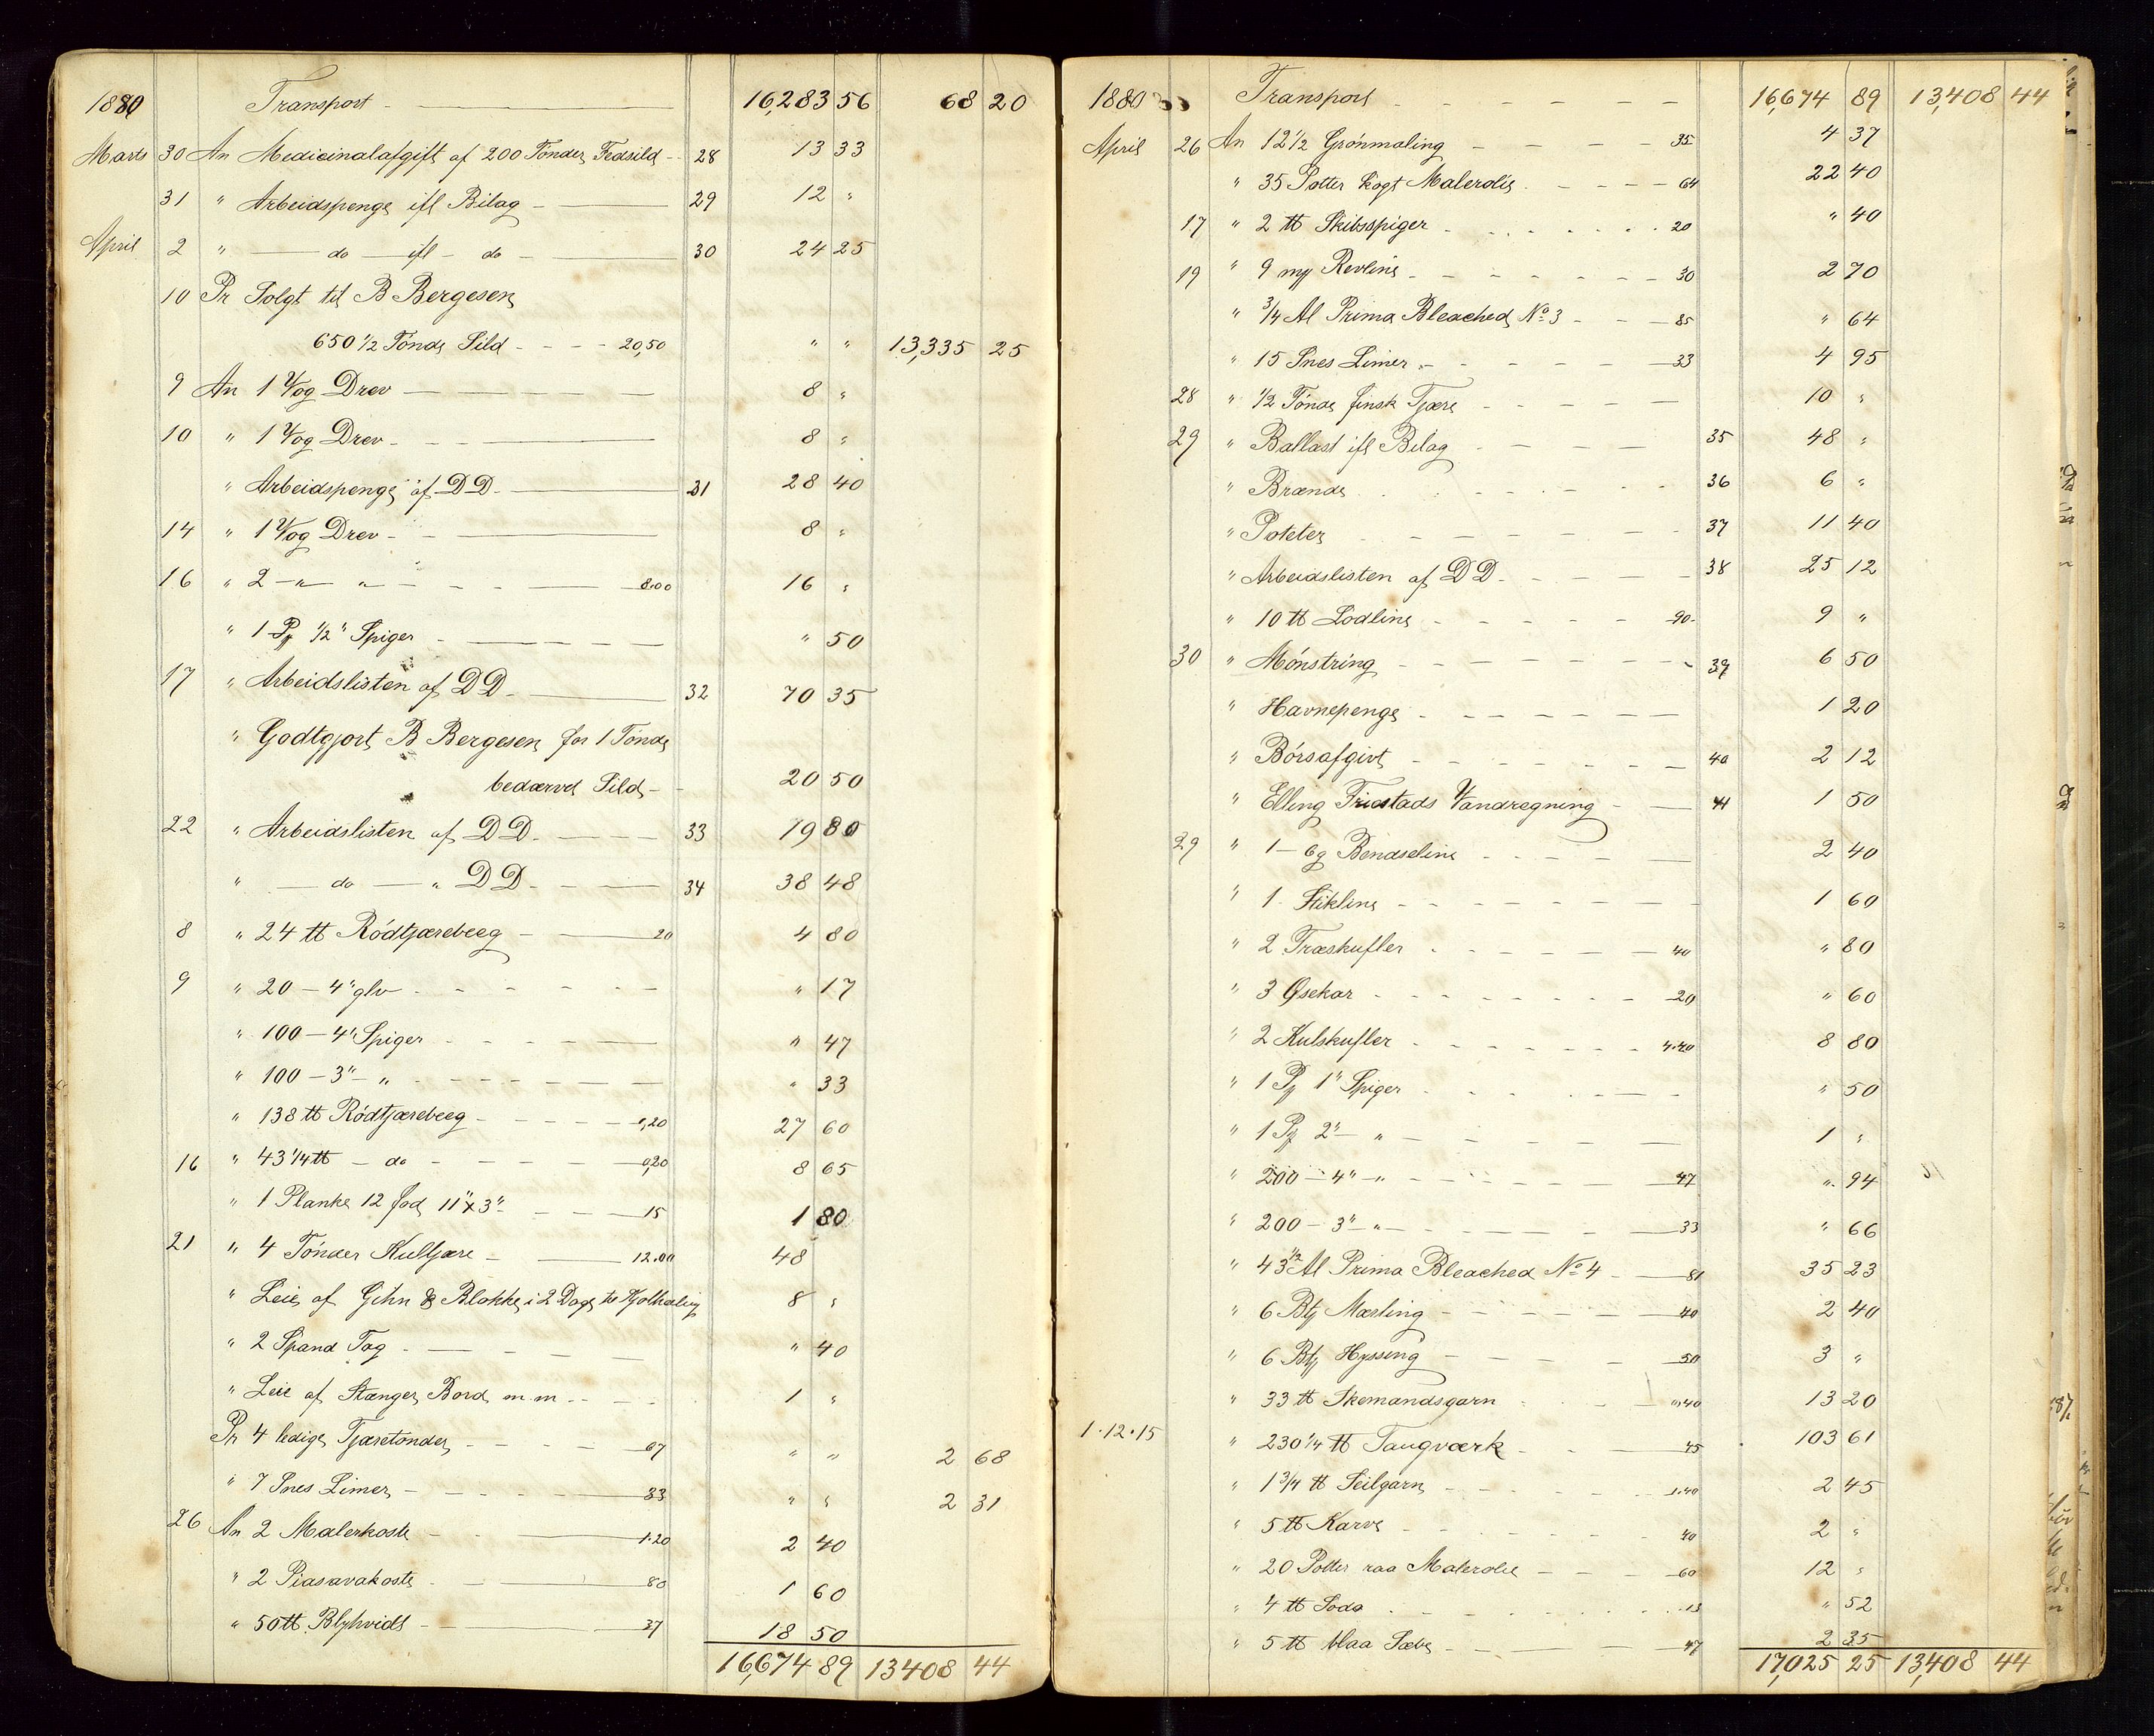 1880 Transport 16,283 56 68 20
Marts 30 An Medicinalafgift af 200 Tönder Fedsild 28 13 33
31 " Arbeidspenge ifl Bilag 29 12 "
April 2 " do ifl do 30 24 25
10 Pr Solgt til B Bergesen
650 1/2 Tönde Sild 20,50 " " 13,335 25
9 An 1 Vog Drev 8 "
10 " 1 Vog Drev 8 "
" Arbeidspenge af DD 31 28 40
14 " 1 Vog Drev 8 "
16 " 2 " " 8.00 16 "
" 1 1/2" Spiger " 50
17 " Arbeidslisten af DD 32 70 35
" Godtgjort B Bergesen for 1 Tönde
bedærvet Sild 20 50
22 " Arbeidslisten af DD 33 19 80
" do " DD 34 38 48
8 " 24 tt Rödtjærebeeg 20 4 80
9 " 20 - 4" glv " 17
" 100 - 4" Spiger " 47
" 100 - 3" " " 33
" 138 tt Rödtjærebeeg 0,20 27 60
16 " 43 1/4 tt do 0,20 8 65
" 1 Planke 12 fod 11" x 3" 15 1 80
21 " 4 Tönder Kultjære 12.00 48
" Leie af Gihn & Blokke i 2 Dage to Kjolhaling 8 "
" 2 Spand Tag " 40
" Leie af Stænger Bord m.m 1 "
Pr 4 ledige Tjæretönder 67 " " 2 68
" 7 Snes Limer 33 " " 2 31
26 An 2 Malerkoste 1.20 2 40
" 2 Piasavakoste 80 1 60
" 50 tt Blyhvidt 37 18 50
16,674 89 13408 44
1880 Transport 16,674 89 13,408 44
April 26 An 12 1/2 Grönmaling 35 4 37
" 35 Potter kogt Malerolie 64 22 40
17 " 2 tt Skibsspiger 20 " 40
19 " 9 Revline 30 2 70
" 3/4 Al Prima Bleached No 3 85 " 64
" 15 Snes Limer 33 4 95
28 " 1/2 Tönde finsk Tjære 10 "
29 " Ballast ifl Bilag 35 48 "
" Brænde 36 6 "
" Poteter 37 11 40
" Arbeidslisten af DD 38 25 12
" 10 tt Lodline 90 9 "
30 " Mönstring 39 6 50
" Havnepenge 1 20
" Börsafgivt 40 2 12
" Elling Fristads Vandregning 41 1 50
29 " 1 - 6g Bendseline 2 40
" 1 Stikline 1 60
" 2 Træskufler 40 " 80
" 3 Øsekar 20 " 60
" 2 Kulskufler 4.40 8 80
" 1 1" Spiger " 50
" 1 2" " 1 "
" 200 - 4" " 47 " 94
" 200 - 3" " 33 " 66
" 43 1/2 Al Prima Bleached No 4 81 35 23
" 6 Bt Mærling 40 2 40
" 6 Bt Hyssing 50 3 "
" 33 tt Skemandsgarn 0,40 13 20
1.12.15 " 230 1/4 tt Taugværk 45 103 61
" 1 3/4 tt Seilgarn 1.40 2 45
" 5 tt Karve 40 2 "
" 20 Potter raa Malerolie 60 12 "
" 4 tt Soda 13 " 52
" 5 tt blaa Sæbe 47 2 35
17,025 25 13,408 44